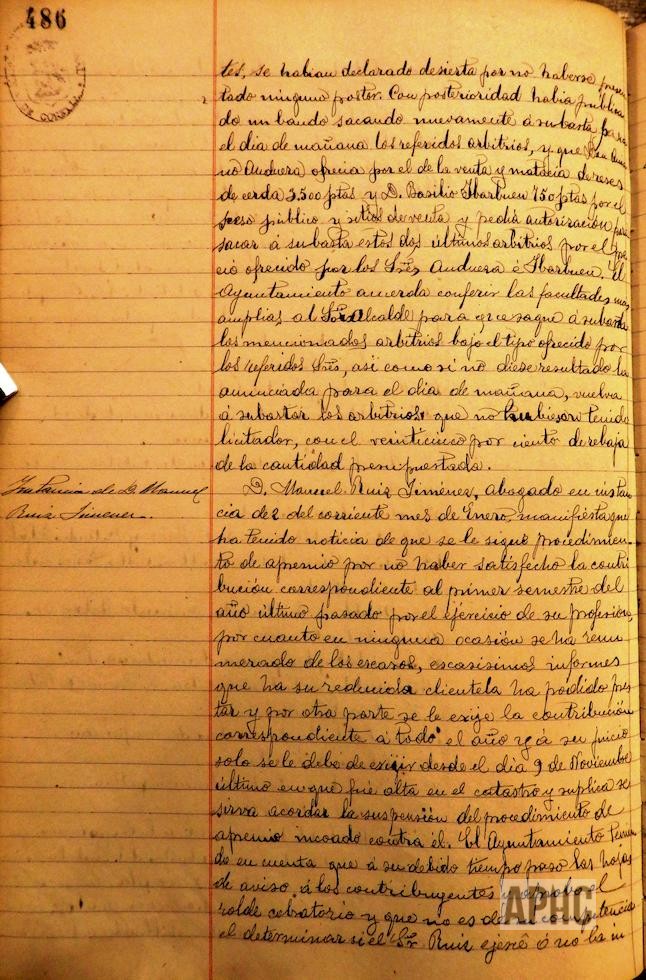 486
DE CORELLA
tes, se habian declarado desierta por no haberse presen
tado ningun postor. Con posterioridad habia publica
do un bando sacando nuevamente á subasta para
el dia de mañana los referidos arbitrios, y que Don
no Andueza ofrecia por el de la venta y matacia de reses
de cerda 3.500 ptas y D. Basilio Ibarbuen 750 ptas por el
peso público y sitios de venta y pedia autorización para
sacar á subasta estos dos últimos arbitrios por el pre
cio ofrecido por los Srẽs Andueza é Ibarbuen. El
Ayuntamiento acuerda conferir las facultades mas
amplias al Sõr Alcalde para que saque á subasta
los mencionados arbitrios bajo el tipo ofrecido por
los referidos Srẽs, asi como si no diese resultado la
anunciada para el dia de mañana, vuelva
á subastar los arbitrios que no hubiesen tenido
licitador, con el veinticinco por ciento de rebaja
de la cantidad presupuestada.
Instancia de D. Manuel
Ruiz Jimenez.
D. Manuel Ruiz Jiménez, abogado en instan
cia de 2 del corriente mes de Enero, manifiesta que
ha tenido noticia de que se le sigue procedimien
to de apremio por no haber satisfecho la contri
bución correspondiente al primer semestre del
año último pasado por el ejercicio de su profesión,
por cuanto en ninguna ocasión se ha remu
nerado de los escasos, escasisimos informes
que ha su reducida clientela ha podido pres
tar y por otra parte se le exije la contribución
correspondiente á todo el año y á su juicio
solo se le debe de exijir desde el dia 9 de Noviembre
último en que fué alta en el catastro y suplica se
sirva acordar la suspensión del procedimiento de
apremio incoado contra él. El Ayuntamiento tenien
do en cuenta que á su debido tiempo paso las hojas
de aviso á los contribuyentes y aprobo el
rolde cobratorio y que no es de su competencia
el determinar si el Sr Ruiz ejerce ó no la in
APHC